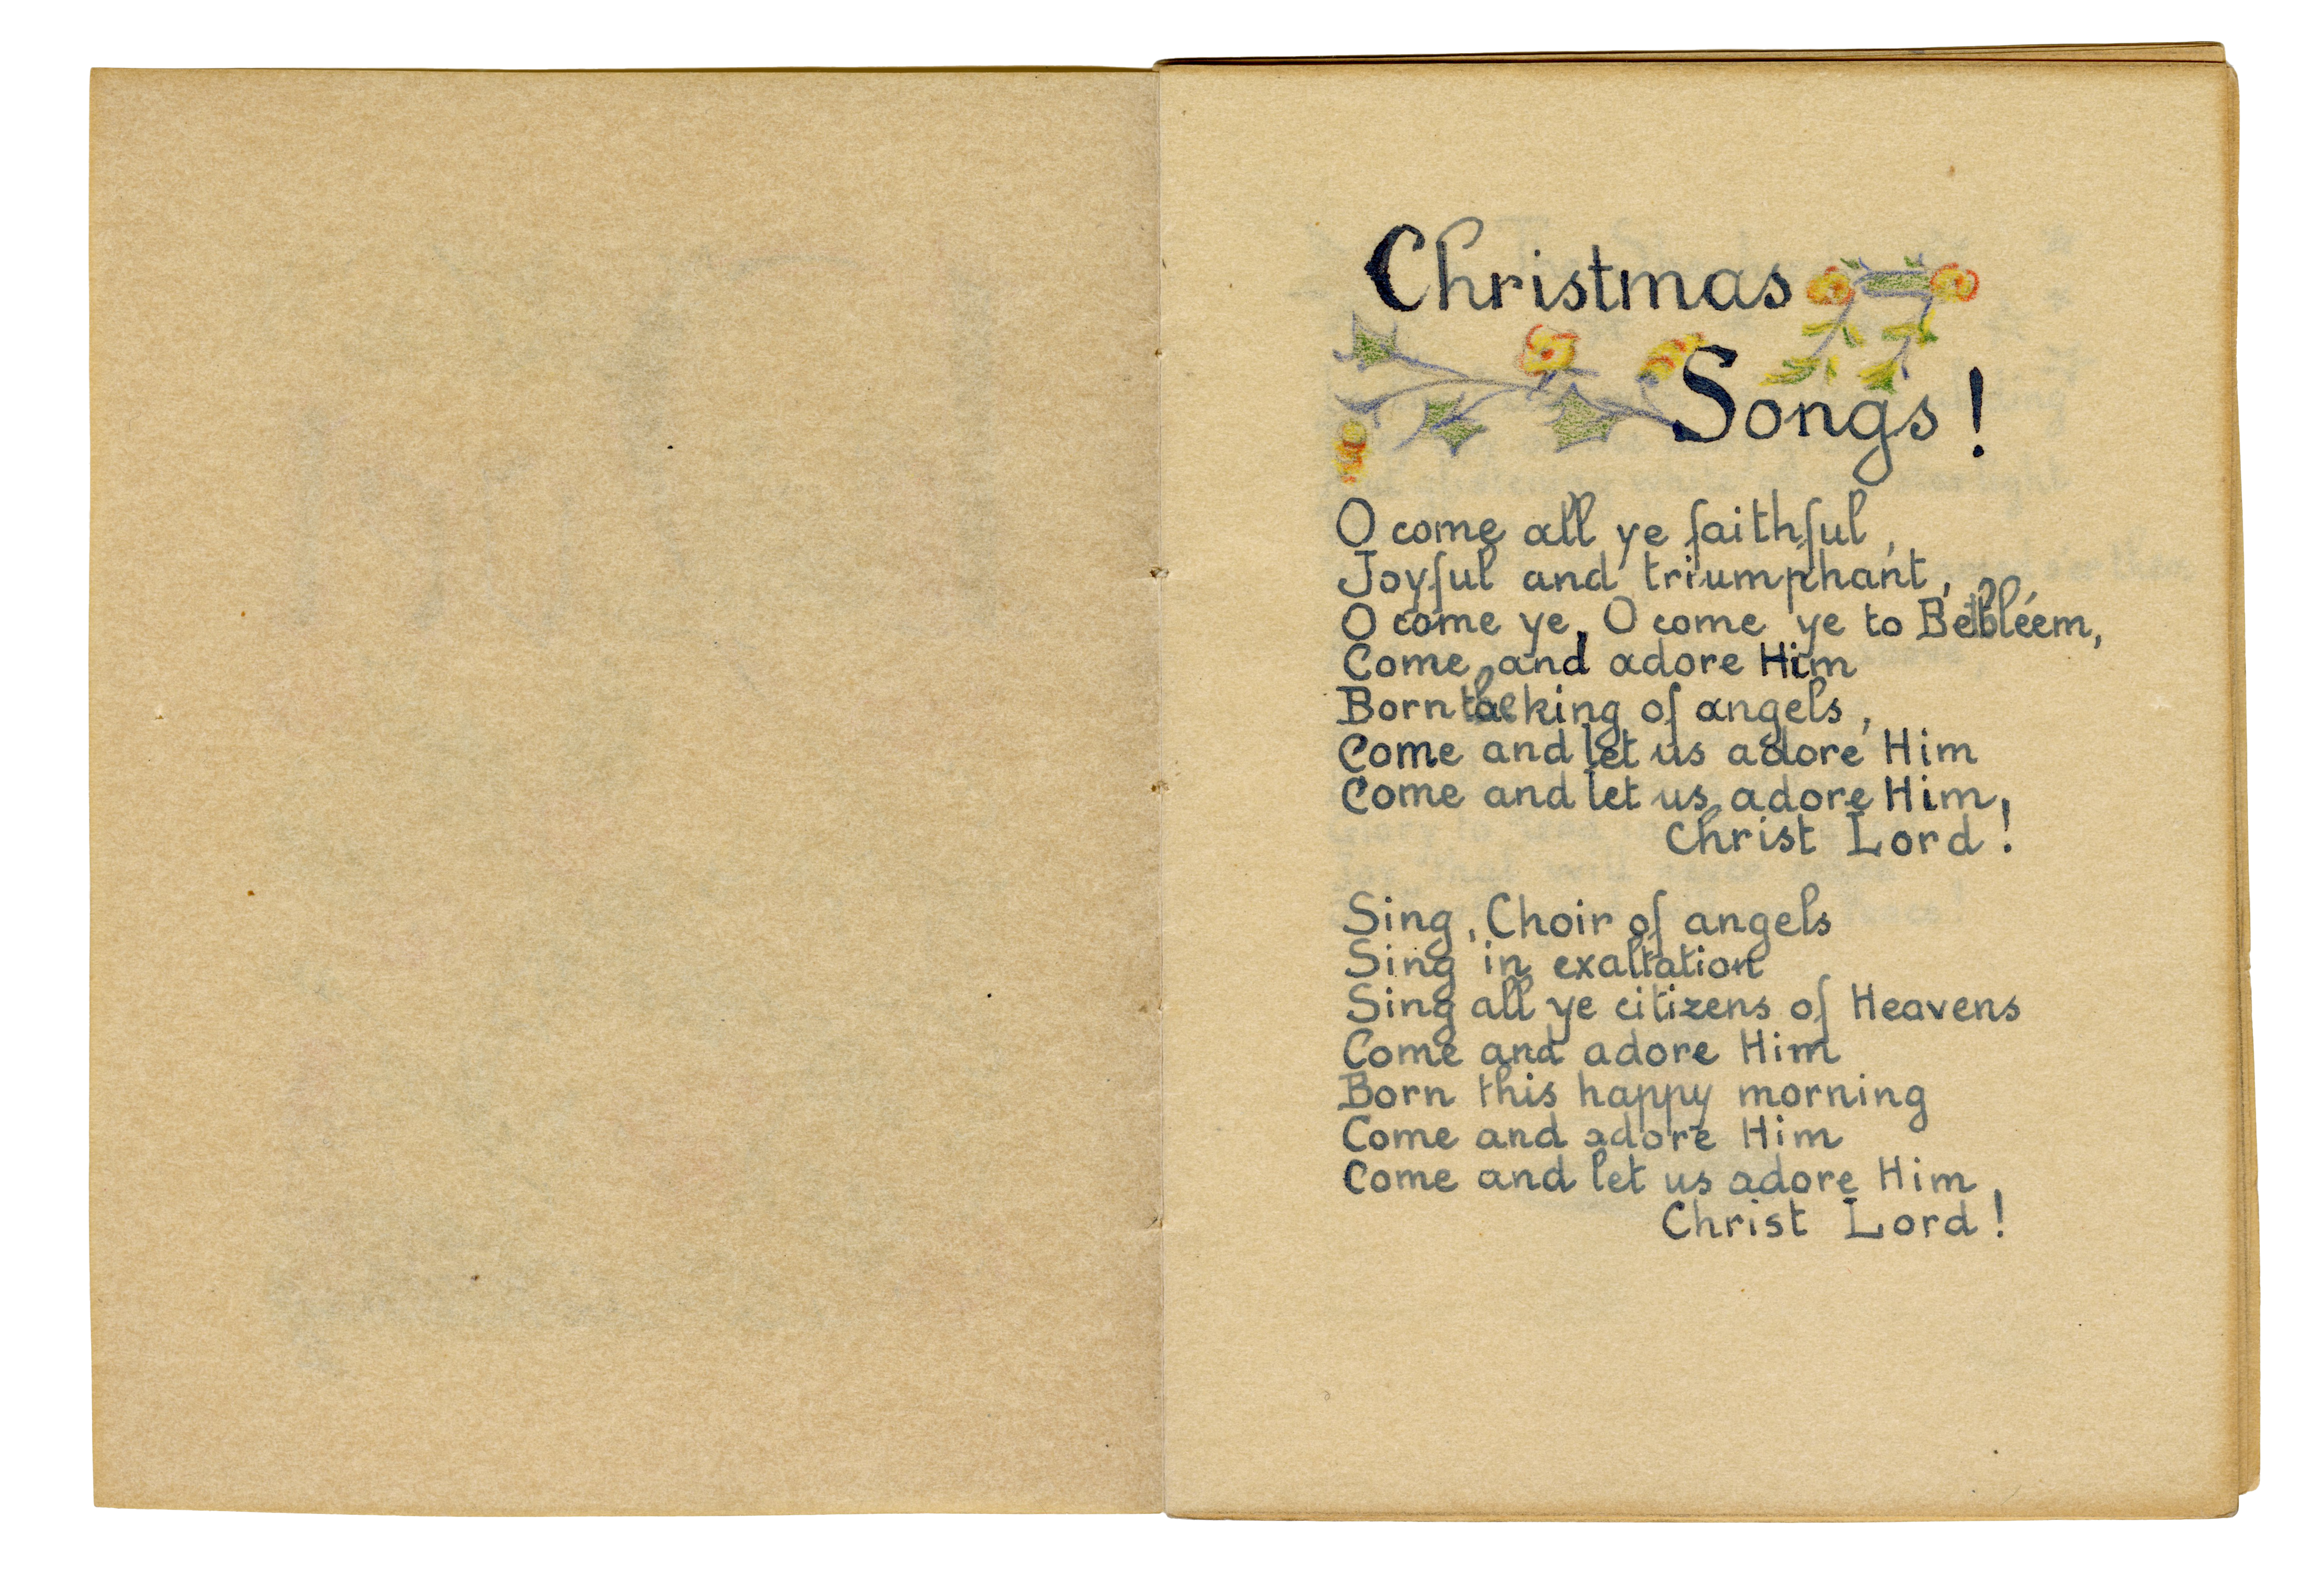 Christmas
Songs!
O come all ye faithful,
Joyful and triumphant,
O come ye, O come ye to Bethléem,
Come and adore Him
Born the king of angels,
Come and let us adore Him
Come and let us adore Him,
Christ Lord!
Sing, Choir of angels
Sing in exaltation
Sing all ye citizens of Heavens
Come and adore Him
Born this happy morning
Come and adore Him
Come and let us adore Him,
Christ Lord!